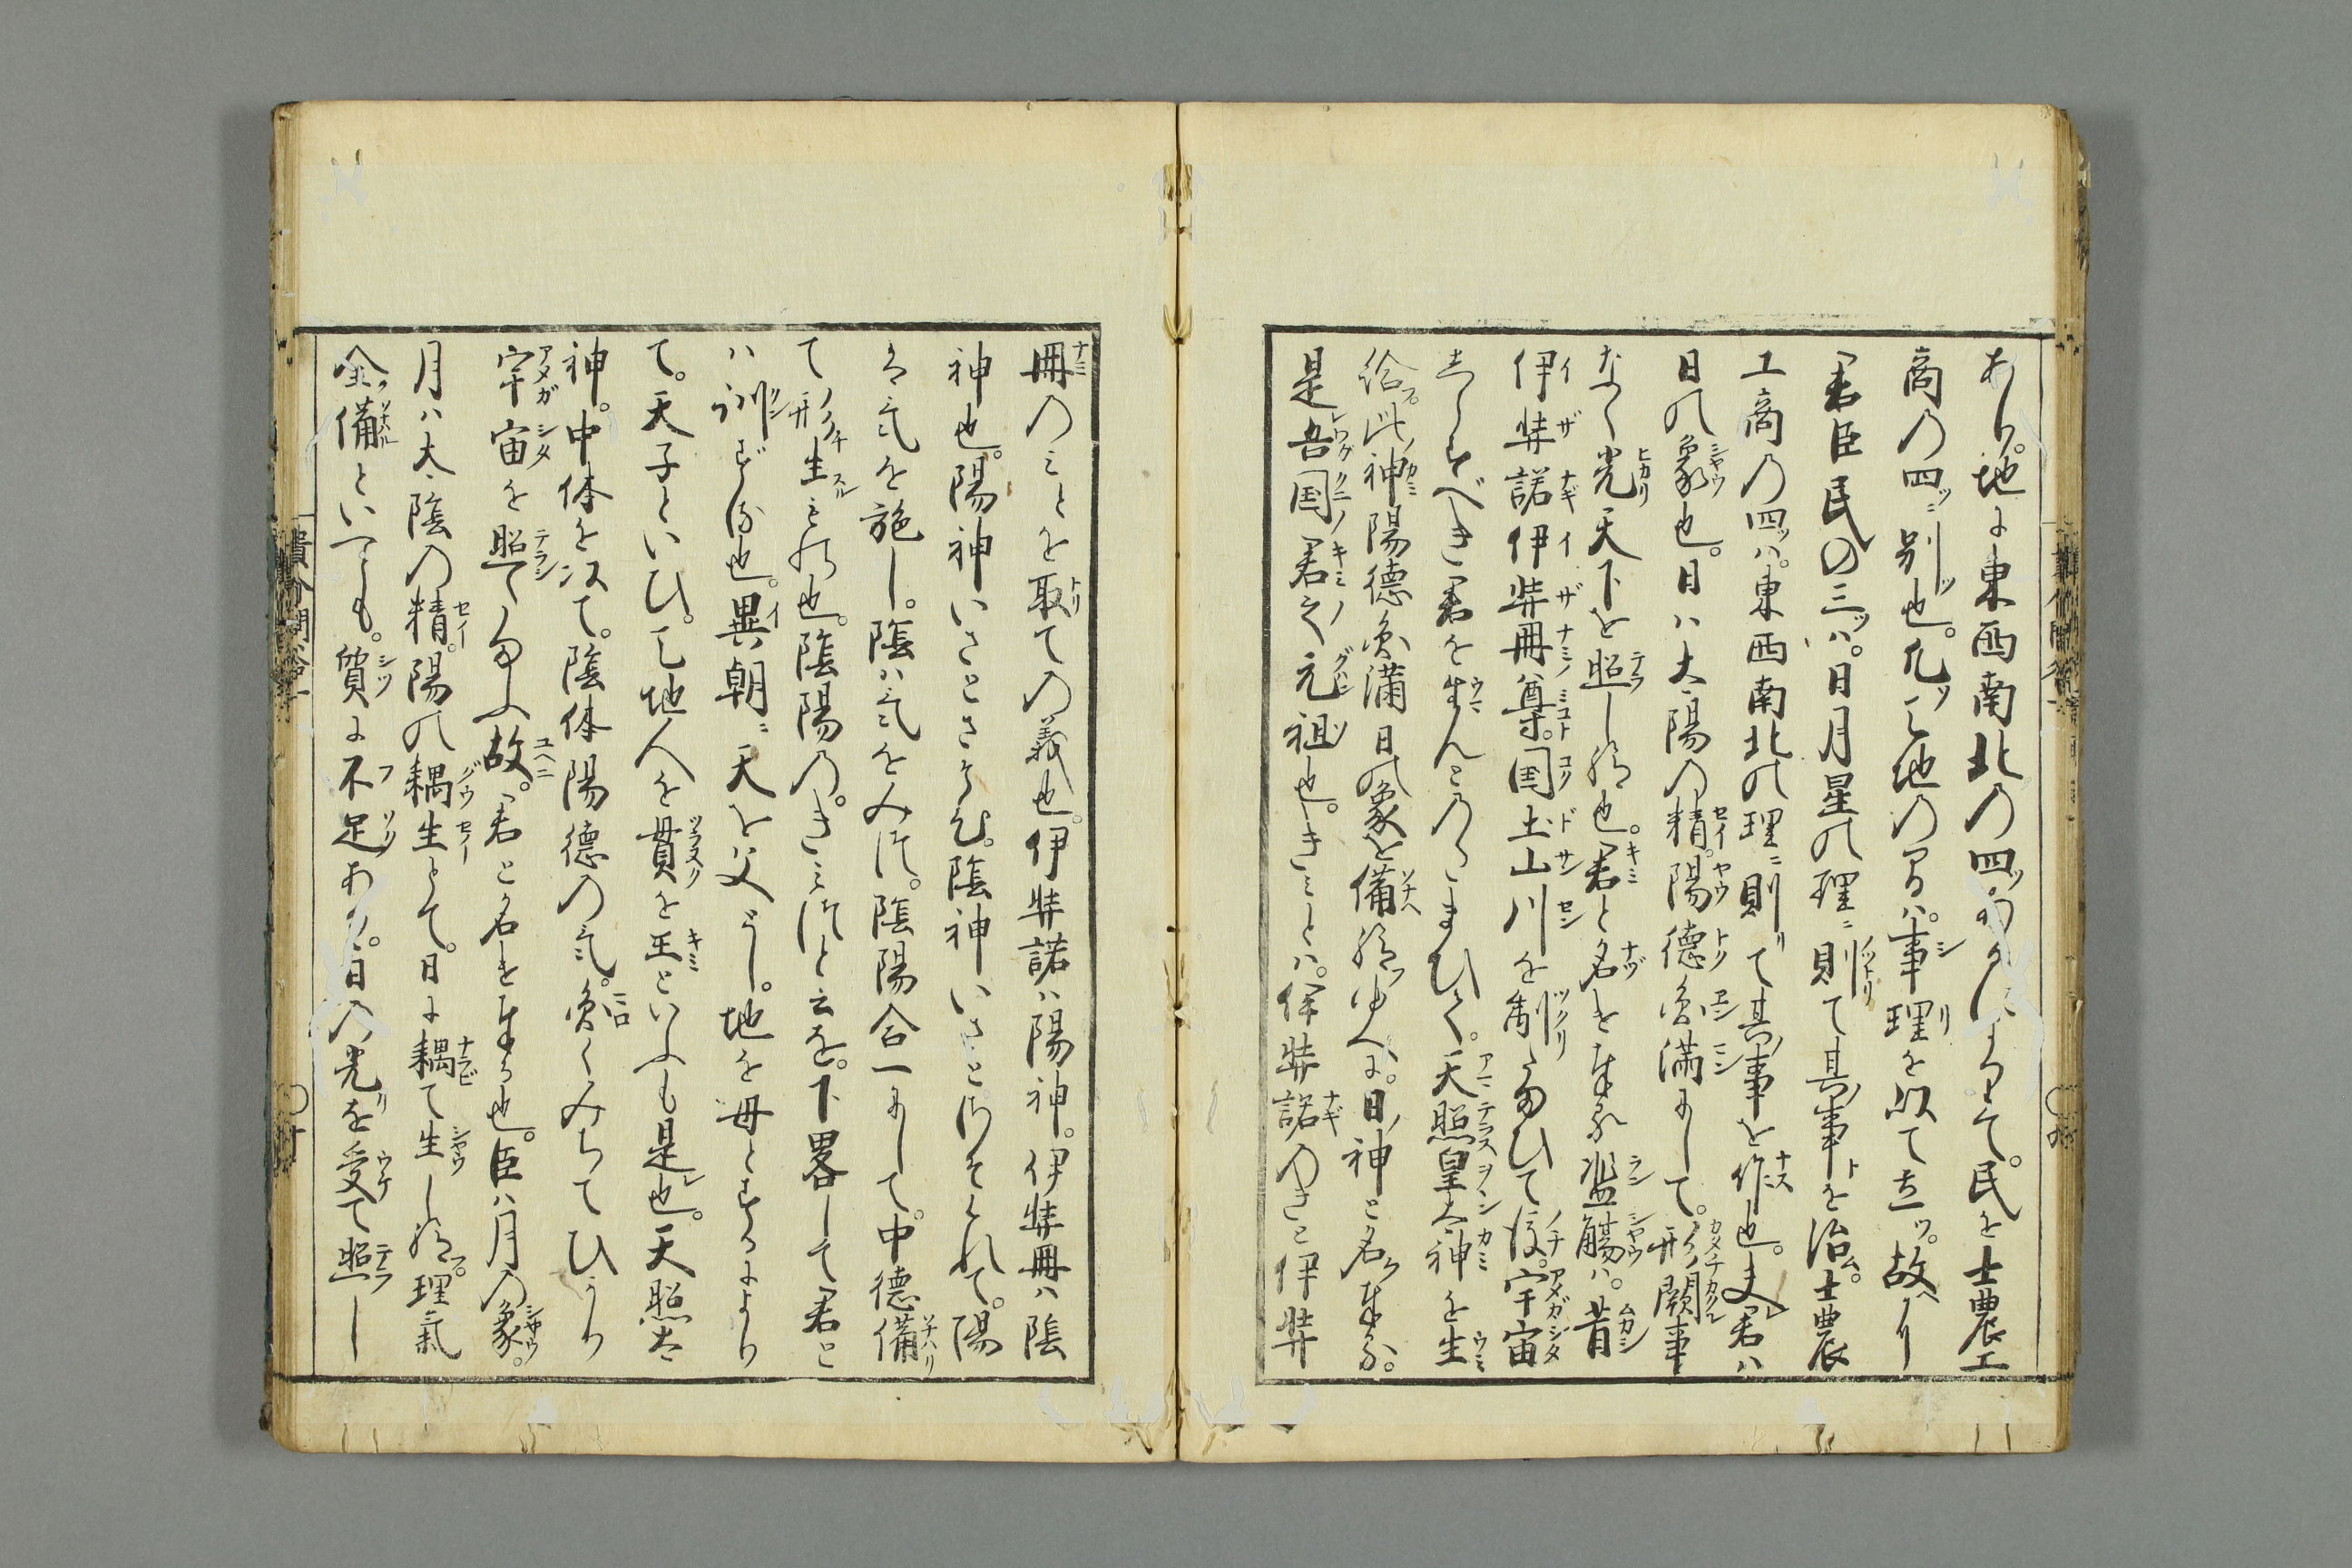 あり。地に東西南北の四ッあるによりて。民を士農工
商の四ッニ別ッ也。凡ッ天地の間ハ。事理を以て立ッ。故に
君臣民の三ッハ。日月星の理ニ則て其事を治ム。士農
工商の四ッハ。東西南北の理ニ則リて其事を作也。夫レ君ハ
日の象也。日ハ太陽の精。陽徳円満にして。形ノ闕事
なく光天下を照し給也。君と名を奉る濫觴ハ。昔
伊弉諾伊弉冊尊。国土山川を制り給ひて後。宇宙
しらすべき君を生んとのたまひて。天照皇太神を生
給フ。此ノ神陽徳円満日の象を備給ッゆへに。日ノ神と名ケ奉る。
是レ吾国ノ君之元祖也。きみとハ。伊弉諾のきと伊弉
冊のみとを取ての義也。伊弉諾ハ陽神。伊弉冊ハ陰
神也。陽神いさとさそひ。陰神いさとさそはれて。陽
ハ気を施し。陰ハ気をみつ。陰陽合一にして。中徳備
て形生するの也。陰陽の。きみつと云を。下畧して君と
ハ訓ずる也。異朝ニ天を父とし。地を母とするにより
て。天子といひ。天地人を貫を王といふも是レ也。天照太
神。中体を以て。陰体陽徳の気。円くみちてひかり
宇宙を照て給ふ故。君と名を奉る也。臣ハ月の象。
月ハ太陰の精。陽の耦生とて。日に耦て生し給フ。理氣
全ク備といへども。質に不足あり。日の光リを受て照し